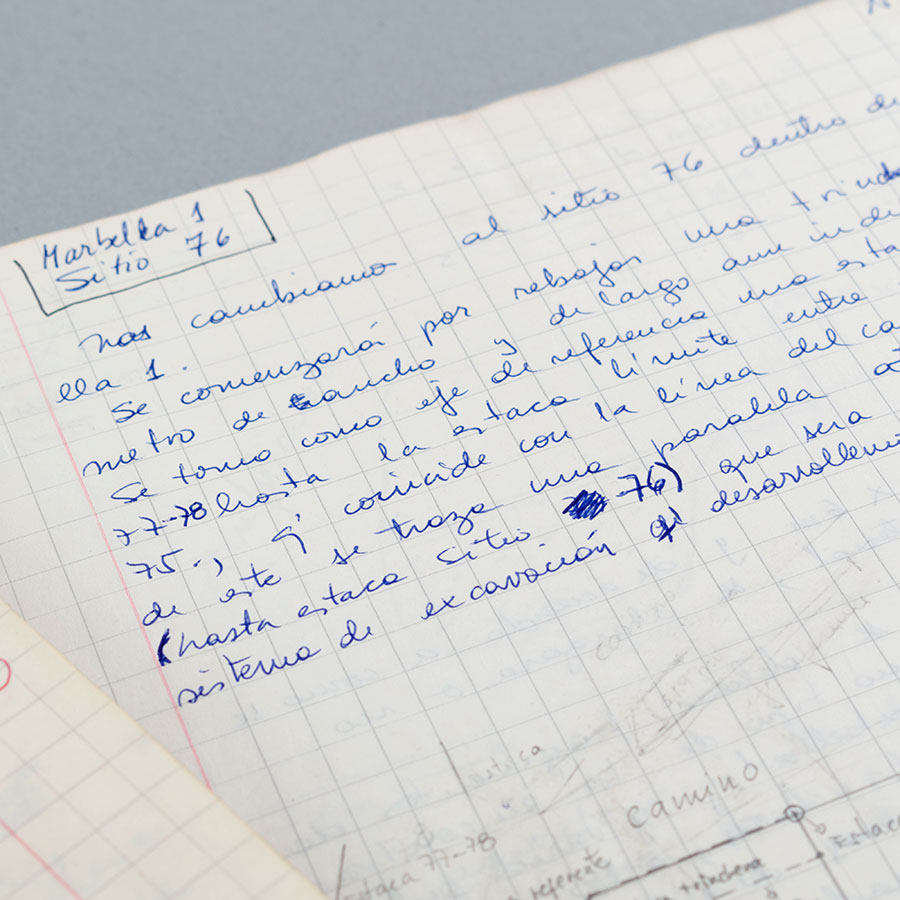 Marbella 1
Sitio 76
Nos cambiamo al sitio 76 dentro de
ella 1.
Se comenzará por rebajar una trind
metro de ancho y de largo aun inde
Se tomo como eje de referencia una esta
77-78 hasta la estaca límite entre
75., q' coincide con la línea del ca
de este se traza una paralela
(hasta estaca sitio 76) que sera
sistema de excavación q' desarrollem
estaca
camino
Estaca 77-78
referente
trinchera
Estaca